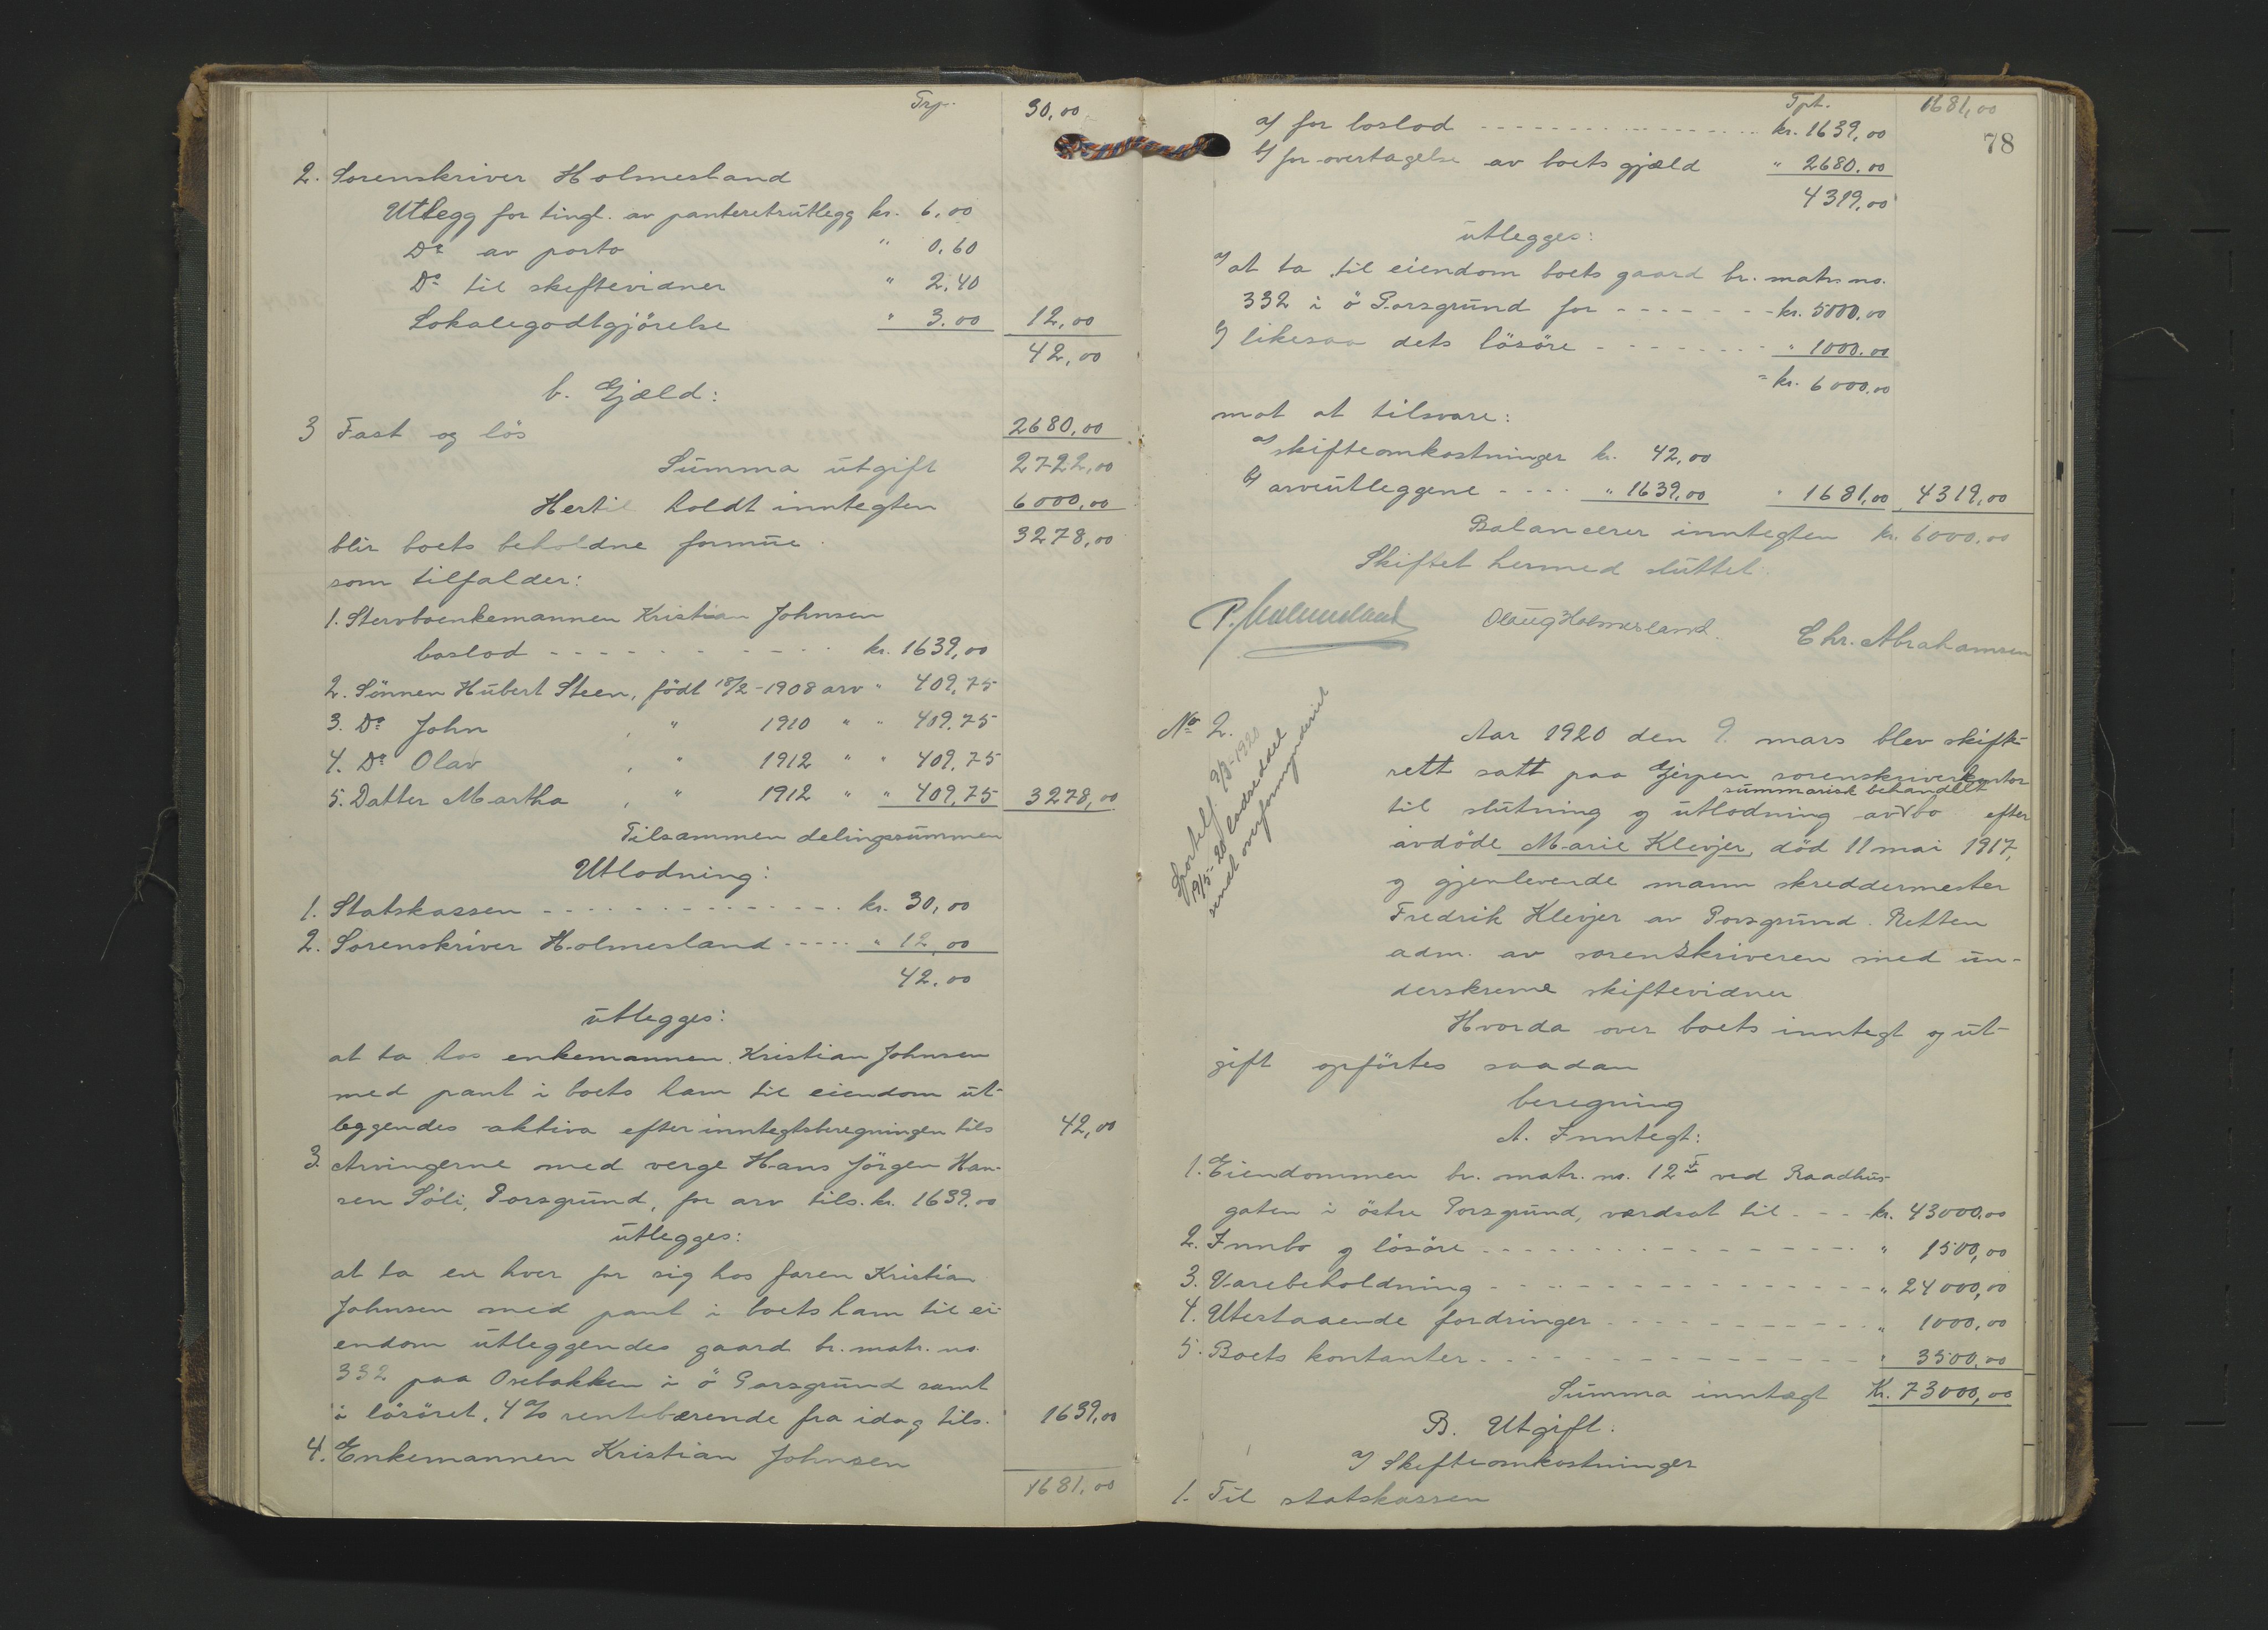 Trp. 30,00
2. Sorenskriver Holmesland
Utlegg for tingl. av panteretsutlegg kr. 6,00
Do av porto " 0.60
Do til skiftevidner " 2.40
Lokalegodtgjörelse " 3.00 12,00
42,00
b. Gjæld:
3 Fast og lös 2680,00
Summa utgift 2722,00
Hertil holdt inntegten 6000,00
blir boets beholdne formue. 3278,00
som tilfalder:
1. Stervboenkemannen Kristian Johnsen
boslod - - - - - - - - - - kr. 1639,00
2. Sönnen Hubert Steen, födt 18/2-1908 arv " 409.75
3. Do John , " 1910 " " 409.75
4. Do Olav , " 1912 " " 409.75
5. Datter Martha , " 1912 " " 409.75 3278,00
Tilsammen delingssummen
Utlodning:
1. Statskassen - - - - - - - - - - - - - kr. 30,00
2. Sorenskriver Holmesland - - - - - " 12,00
42.00
utlegges:
at ta hos enkemannen Kristian Johnsen
med pant i boets ham til eiendom ut-
leggendes aktiva efter inntegtsberegningen tils 42,00
3. Arvingerne med verge Hans Jörgen Han-
sen Söli, Porsgrund, for arv tils. kr. 1639.00
utlegges:
at ta en hver for sig hos faren Kristian
Johnsen med pant i boets ham til ei-
endom utleggendes gaard br. matr. no.
332 paa Osebakken i ö Porsgrund samt
i lösöret, 4% rentebærende fra idag tils. 1639,00
4. Enkemannen Kristian Johnsen
1681.00
Tpt. 1681,00
78
a/ for boslod - - - - - - - - - - - - - - kr. 1639,00
b/ for overtagelse av boets gjæld " 2680.00
4319,00
utlegges:
a/ at ta til eiendom boets gaard br. matr. no.
332 i ö Porsgrund for - - - - - - - kr. 5000.00
b/ likesaa dets lösöre - - - - - - - - " 1000.00
= kr. 6000.00
mot at tilsvare:
a/ skifteomkostninger kr. 42,00
b/ arveutleggene - - - - " 1639,00 " 1681,00 4319,00
Balancerer inntegten kr. 6000.00
Skiftet hermed sluttet.
P. Holmesland Olaug Holmesland. Chr. Abrahamsen
No 2.
19/5-20 lodseddel
sendt overformynderiet
Aar 1920 den 9 mars blev skifte-
rett satt paa Gjerpen sorenskriverkontor
summarisk behandlet
til slutning og utlodning av bo efter
avdöde Marie Klevjer, död 11 mai 1917,
og gjenlevende mann skreddermester
Fredrik Klevjer av Porsgrund. Retten
adm. av sorenskriveren med un-
derskrevne skiftevidner
Hvorda over boets inntegt og ut-
gift opförtes saadan
beregning
A. Inntegt:
1. Eiendommen br. matr. no. 12 ved Raadhus-
gaten i östre Porsgrund, værdsat til - - - kr. 43000.00
2. Innbo og lösöre - - - - - - - - - - - - - - " 1500,00
3. Varebeholdning - - - - - - - - - - - - - - " 24000,00
4. Utestaaende fordringer - - - - - - - - - - " 1000,00
5. Boets kontanter - - - - - - - - - - - - - - " 3500,00
Summa inntægt Kr. 73000,00
B. Utgift.
a/ Skifteomkostninger
1. Til statskassen